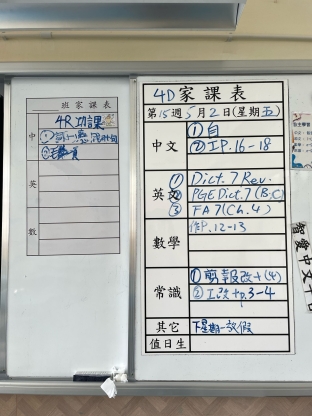 班家課表
4R功課
中
英
數
4D家課表
第15週5月2日(星期五)
中文
①自
②I.P. 16-18
英文
① Dict. 7 Rev.
② PGE Dict. 7 (B.C)
③ FA 7 (Ch. 4)
數學
作P. 12-13
常識
①剪報改+(4)
②工改+p.3-4
其它
下星期一放假
值日生
智愛中文平台